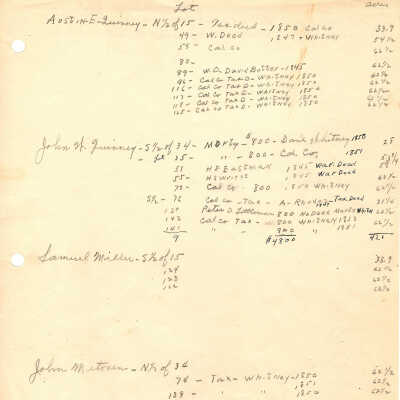 Lot
acres
Austin E Quinney - N½ of 15 - Tax deed - 1850 Cal Co 33.9
49 - W. Deed 1847 + Whitney 54½
58 - Cal Co 62½
80 -
89 - W.D. David 1845 62½
96 - Cal Co Tax D - Whitney 1850 62½
116 - Cal Co Tax D - Whitney 1850 62½
117 - Cal Co Tax D - Whitney 1850 62½
118 - Cal Co Tax D - Whitney 1850
125 - Cal Co Tax D - Whitney 1850 62½
John W. Quinney - S½ of 34 - $800 - David Whitney 1850 25
35 - " - 800 - Cal Co, 1851
51 H F Eastman 1845 War Deed
55 - War Deed 62½
72 - Cal Co - 800 1850 Whitney 62½
S½ - 72 Cal Co - Tax - A - Tax Deed 31¼
127 Peter D 800 No Date Marks 62½
142 Cal Co Tax - 800 Whitney 1853 62½
141 " " 800 " 1851 62½
9 $4800 421
Samuel Miller - S½ of 15 33.9
124 62½
123 62½
122 62½
John Metoxen - N½ of 34 62½
74 - Tax - Whitney - 1850 62½
" 1851 62½
128 - " " 1850 62½